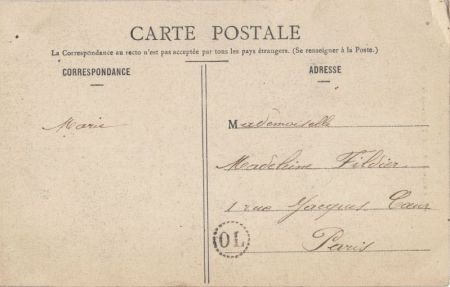 CARTE POSTALE
La Correspondance au recto n'est pas acceptée par tous les pays étrangers. (Se renseigner à la Poste.)
CORRESPONDANCE
ADRESSE
Marie
Mademoiselle
Madeleine Fildier
1 rue Jacques Cœur
Paris
OL